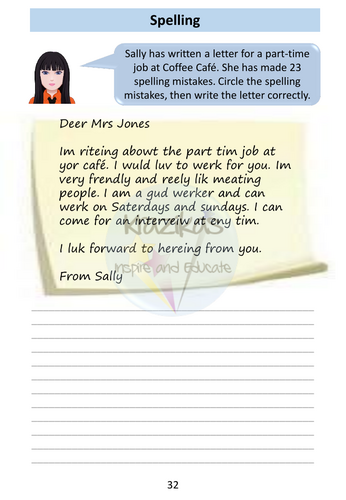 Spelling
Sally has written a letter for a part-time
job at Coffee Café. She has made 23
spelling mistakes. Circle the spelling
mistakes, then write the letter correctly.
Deer Mrs Jones
Im riteing abowt the part tim job at
yor café. I wuld luv to werk for you. Im
very frendly and reely lik meating
people. I am a gud werker and can
werk on Saterdays and sundays. I can
come for an interveiw at eny tim.
I luk forward to hereing from you.
Inspire and Educate
From Sally
32